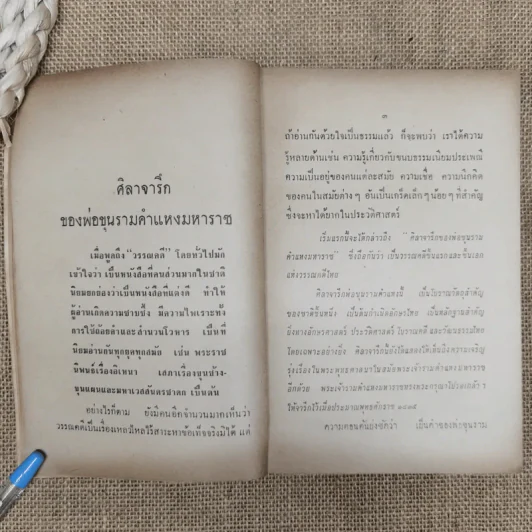 ศิลาจารึก
ของพ่อขุนรามคำแหงมหาราช
เมื่อพูดถึง "วรรณคดี" โดยทั่วไปมัก
เข้าใจว่า เป็นหนังสือที่คนส่วนมากในชาติ
นิยมยกย่องว่าเป็นหนังสือที่แต่งดี ทำให้
ผู้อ่านเกิดความซาบซึ้ง มีความไพเราะทั้ง
การใช้ถ้อยคำและสำนวนโวหาร เป็นที่
นิยมอ่านกันทุกยุคทุกสมัย เช่น พระราช
นิพนธ์เรื่องอิเหนา เสภาเรื่องขุนช้าง-
ขุนแผนและมหาเวสสันดรชาดก เป็นต้น
อย่างไรก็ตาม ยังมีคนอีกจำนวนมากเห็นว่า
วรรณคดีเป็นเรื่องเหลวไหลไร้สาระหาข้อเท็จจริงมิได้ แต่
๓
ถ้าอ่านกันด้วยใจเป็นธรรมแล้ว ก็จะพบว่า เราได้ความ
รู้หลายด้านเช่น ความรู้เกี่ยวกับขนบธรรมเนียมประเพณี
ความเป็นอยู่ของคนแต่ละสมัย ความเชื่อ ความนึกคิด
ของคนในสมัยต่าง ๆ อันเป็นเกร็ดเล็ก ๆ น้อย ๆ ที่สำคัญ
ซึ่งจะหาได้ยากในประวัติศาสตร์
เริ่มแรกนี้จะได้กล่าวถึง "ศิลาจารึกของพ่อขุนราม
คำแหงมหาราช" ซึ่งถือกันว่า เป็นวรรณคดีชิ้นแรกและชิ้นเอก
แห่งวรรณคดีไทย
ศิลาจารึกพ่อขุนรามคำแหงนี้ เป็นโบราณวัตถุสำคัญ
ของชาติชิ้นหนึ่ง เป็นต้นกำเนิดอักษรไทย เป็นหลักฐานสำคัญ
ยิ่งทางอักษรศาสตร์ ประวัติศาสตร์ โบราณคดี และวัฒนธรรมไทย
โดยเฉพาะอย่างยิ่ง ศิลาจารึกนี้ยังได้แสดงให้เห็นถึงความเจริญ
รุ่งเรืองในพระพุทธศาสนาในสมัยพระเจ้ารามคำแหงมหาราช
อีกด้วย พระเจ้ารามคำแหงมหาราชทรงพระกรุณาโปรดเกล้า ฯ
ให้จารึกไว้เมื่อประมาณพุทธศักราช ๑๘๓๕
ความตอนต้นบ่งชัดว่า เป็นคำของพ่อขุนราม